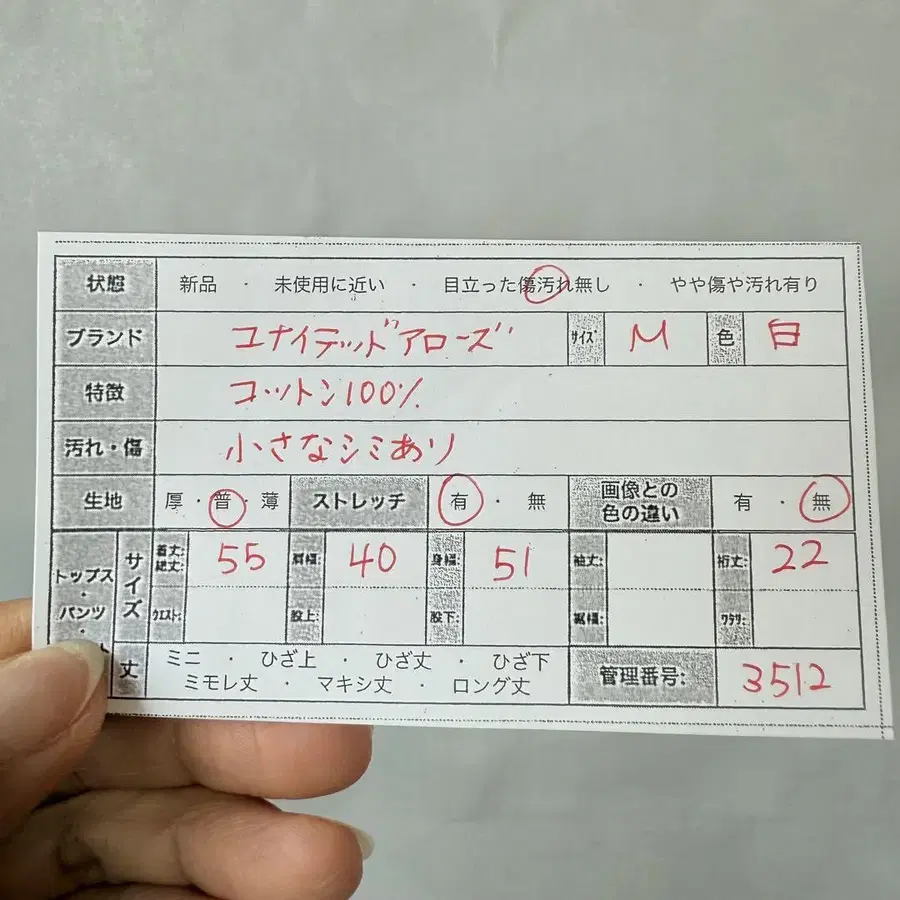 状態 新品 ・ 未使用に近い ・ 目立った傷汚れ無し ・ やや傷や汚れ有り
ブランド ユナイテッドアローズ サイズ M 色 白
特徴 コットン100%
汚れ・傷 小さなシミあり
生地 厚・普・薄 ストレッチ 有・無 画像との色の違い 有・無
トップス・パンツ・ サイズ 着丈:総丈: 55 肩幅: 40 身幅: 51 袖丈: 裄丈: 22
ウエスト: 股上: 股下: 裾幅: ワタリ:
丈 ミニ ・ ひざ上 ・ ひざ丈 ・ ひざ下
ミモレ丈 ・ マキシ丈 ・ ロング丈 管理番号: 3512